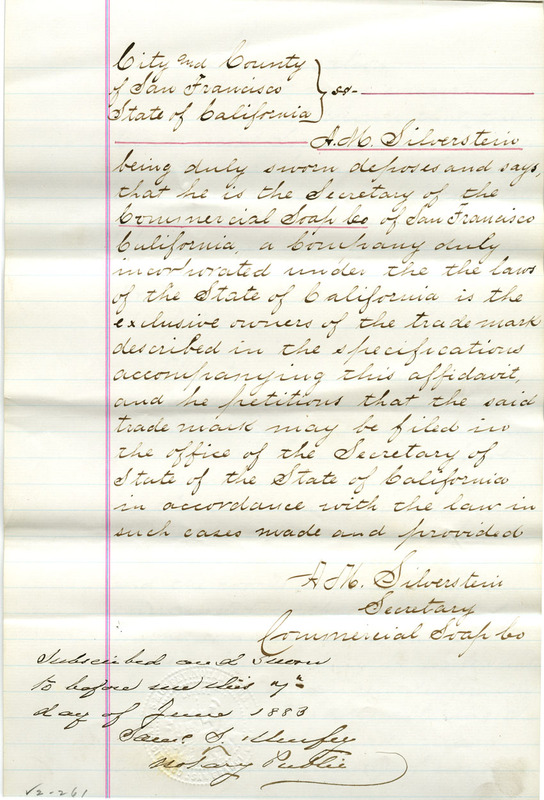 City and County
of San Francisco } ss-
State of California
A. M. Silverstein
being duly sworn deposes and says,
that he is the Secretary of the
Commercial Soap Co of San Francisco
California, a Company duly
incorporated under the the laws
of the State of California is the
exclusive owners of the trade mark
described in the specifications
accompanying this affidavit,
and he petitions that the said
trade mark may be filed in
the office of the Secretary of
State of the State of California
in accordance with the law in
such cases made and provided
A. M. Silverstein
Secretary
Commercial Soap Co
Subscribed and Sworn
to before me this 7th
day of June 1883
Saml. S.
Notary Public
V2-261